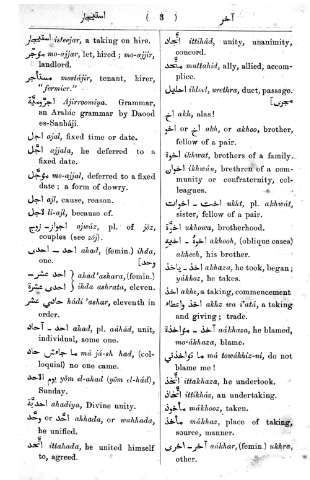 استيجار ( 3 ) آخر
استيجار isteejar, a taking on hire.
موجّر mo-ajjar, let, hired; mo-ajjir,
landlord.
مستأجر mostájir, tenant, hirer,
"farmer."
Ajirooniya. Grammar,
an Arabic grammar by Daood
es-Sanháji.
اجل ajal, fixed time or date.
اجّل ajjala, he deferred to a
fixed date.
مؤجّل mo-ajjal, deferred to a fixed
date; a form of dowry.
اجل ajl, cause, reason.
لاجل li-ajl, because of.
اجواز - زوج ajwáz, pl. of józ,
couples (see zój).
احد - احدى ahad, (femin.) ihda,
one.
احد عشر - ahad'ashara, (femin.)
احدى عشرة ihda ashrata, eleven.
حادي عشر hádi 'ashar, eleventh in
order.
احد - آحاد ahad, pl. aáhád, unit,
individual, some one.
ما جاءش حاد má já-sh had, (col-
loquial) no one came.
يوم الاحد yóm el-ahad (yóm el-hád),
Sunday.
احديّة ahadiya, Divine unity.
احّد or وحّد ahhada, or wahhada,
he unified.
اتّحد ittahada, he united himself
to, agreed.
اتّحاد ittihád, unity, unanimity,
concord.
متّحد muttahid, ally, allied, accom-
plice.
احليل ihleel, urethra, duct, passage.
آخ akh, alas!
اخ or اخو akh, or akhoo, brother,
fellow of a pair.
اخوة ikhwat, brothers of a family.
اخوان ikhwán, brethren of a com-
munity or confraternity, col-
leagues.
اخت - اخوات ukht, pl. akhwát,
sister, fellow of a pair.
اخوة ukhowa, brotherhood.
اخوه - اخيه akhooh, (oblique cases)
akheeh, his brother.
اخذ - ياخذ akhaza, he took, began;
yákhoz, he takes.
اخذ akhz, a taking, commencement
اخذ واعطاء akhz wa i'atá, a taking
and giving; trade.
آخذ - مؤاخذة aákhaza, he blamed,
mo-ákhaza, blame.
ما تواخذني má towákhiz-ni, do not
blame me!
اتّخذ ittakhaza, he undertook.
اتّخاذ ittikház, an undertaking.
مأخوذ mákhooz, taken.
مأخذ mákhaz, place of taking,
source, manner.
آخر - اخرى aákhar, (femin.) ukhra,
other.